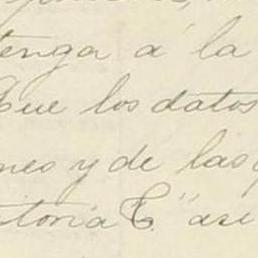 tenga á la
Que los datos
nes y de las
toria E." asi